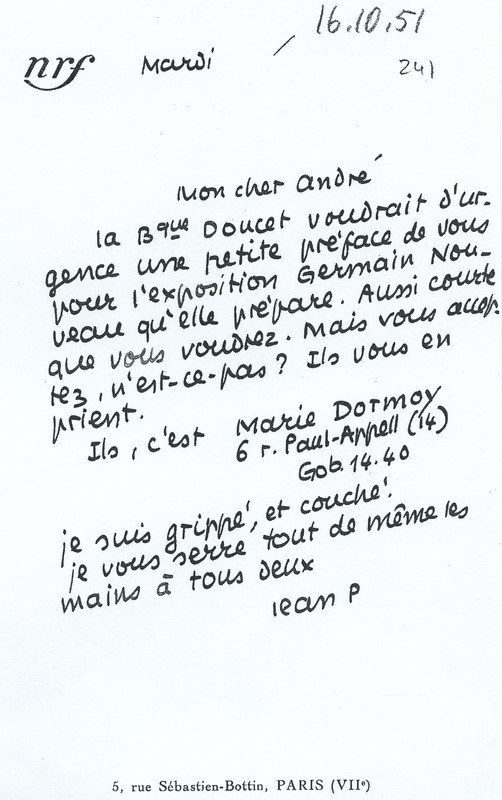 16.10.51
nrf Mardi
241
Mon cher André
la Bque Doucet voudrait d'ur-
gence une petite préface de vous
pour l'exposition Germain Nou-
veau qu'elle prépare. Aussi courte
que vous voudrez. Mais vous accep-
tez, n'est-ce-pas ? Ils vous en
prient.
Ils, c'est Marie Dormoy
6 r. Paul-Appell (14)
Gob. 14.40
je suis grippé, et couché.
je vous serre tout de même les
mains à tous deux
Jean P
5, rue Sébastien-Bottin, PARIS (VIIe)